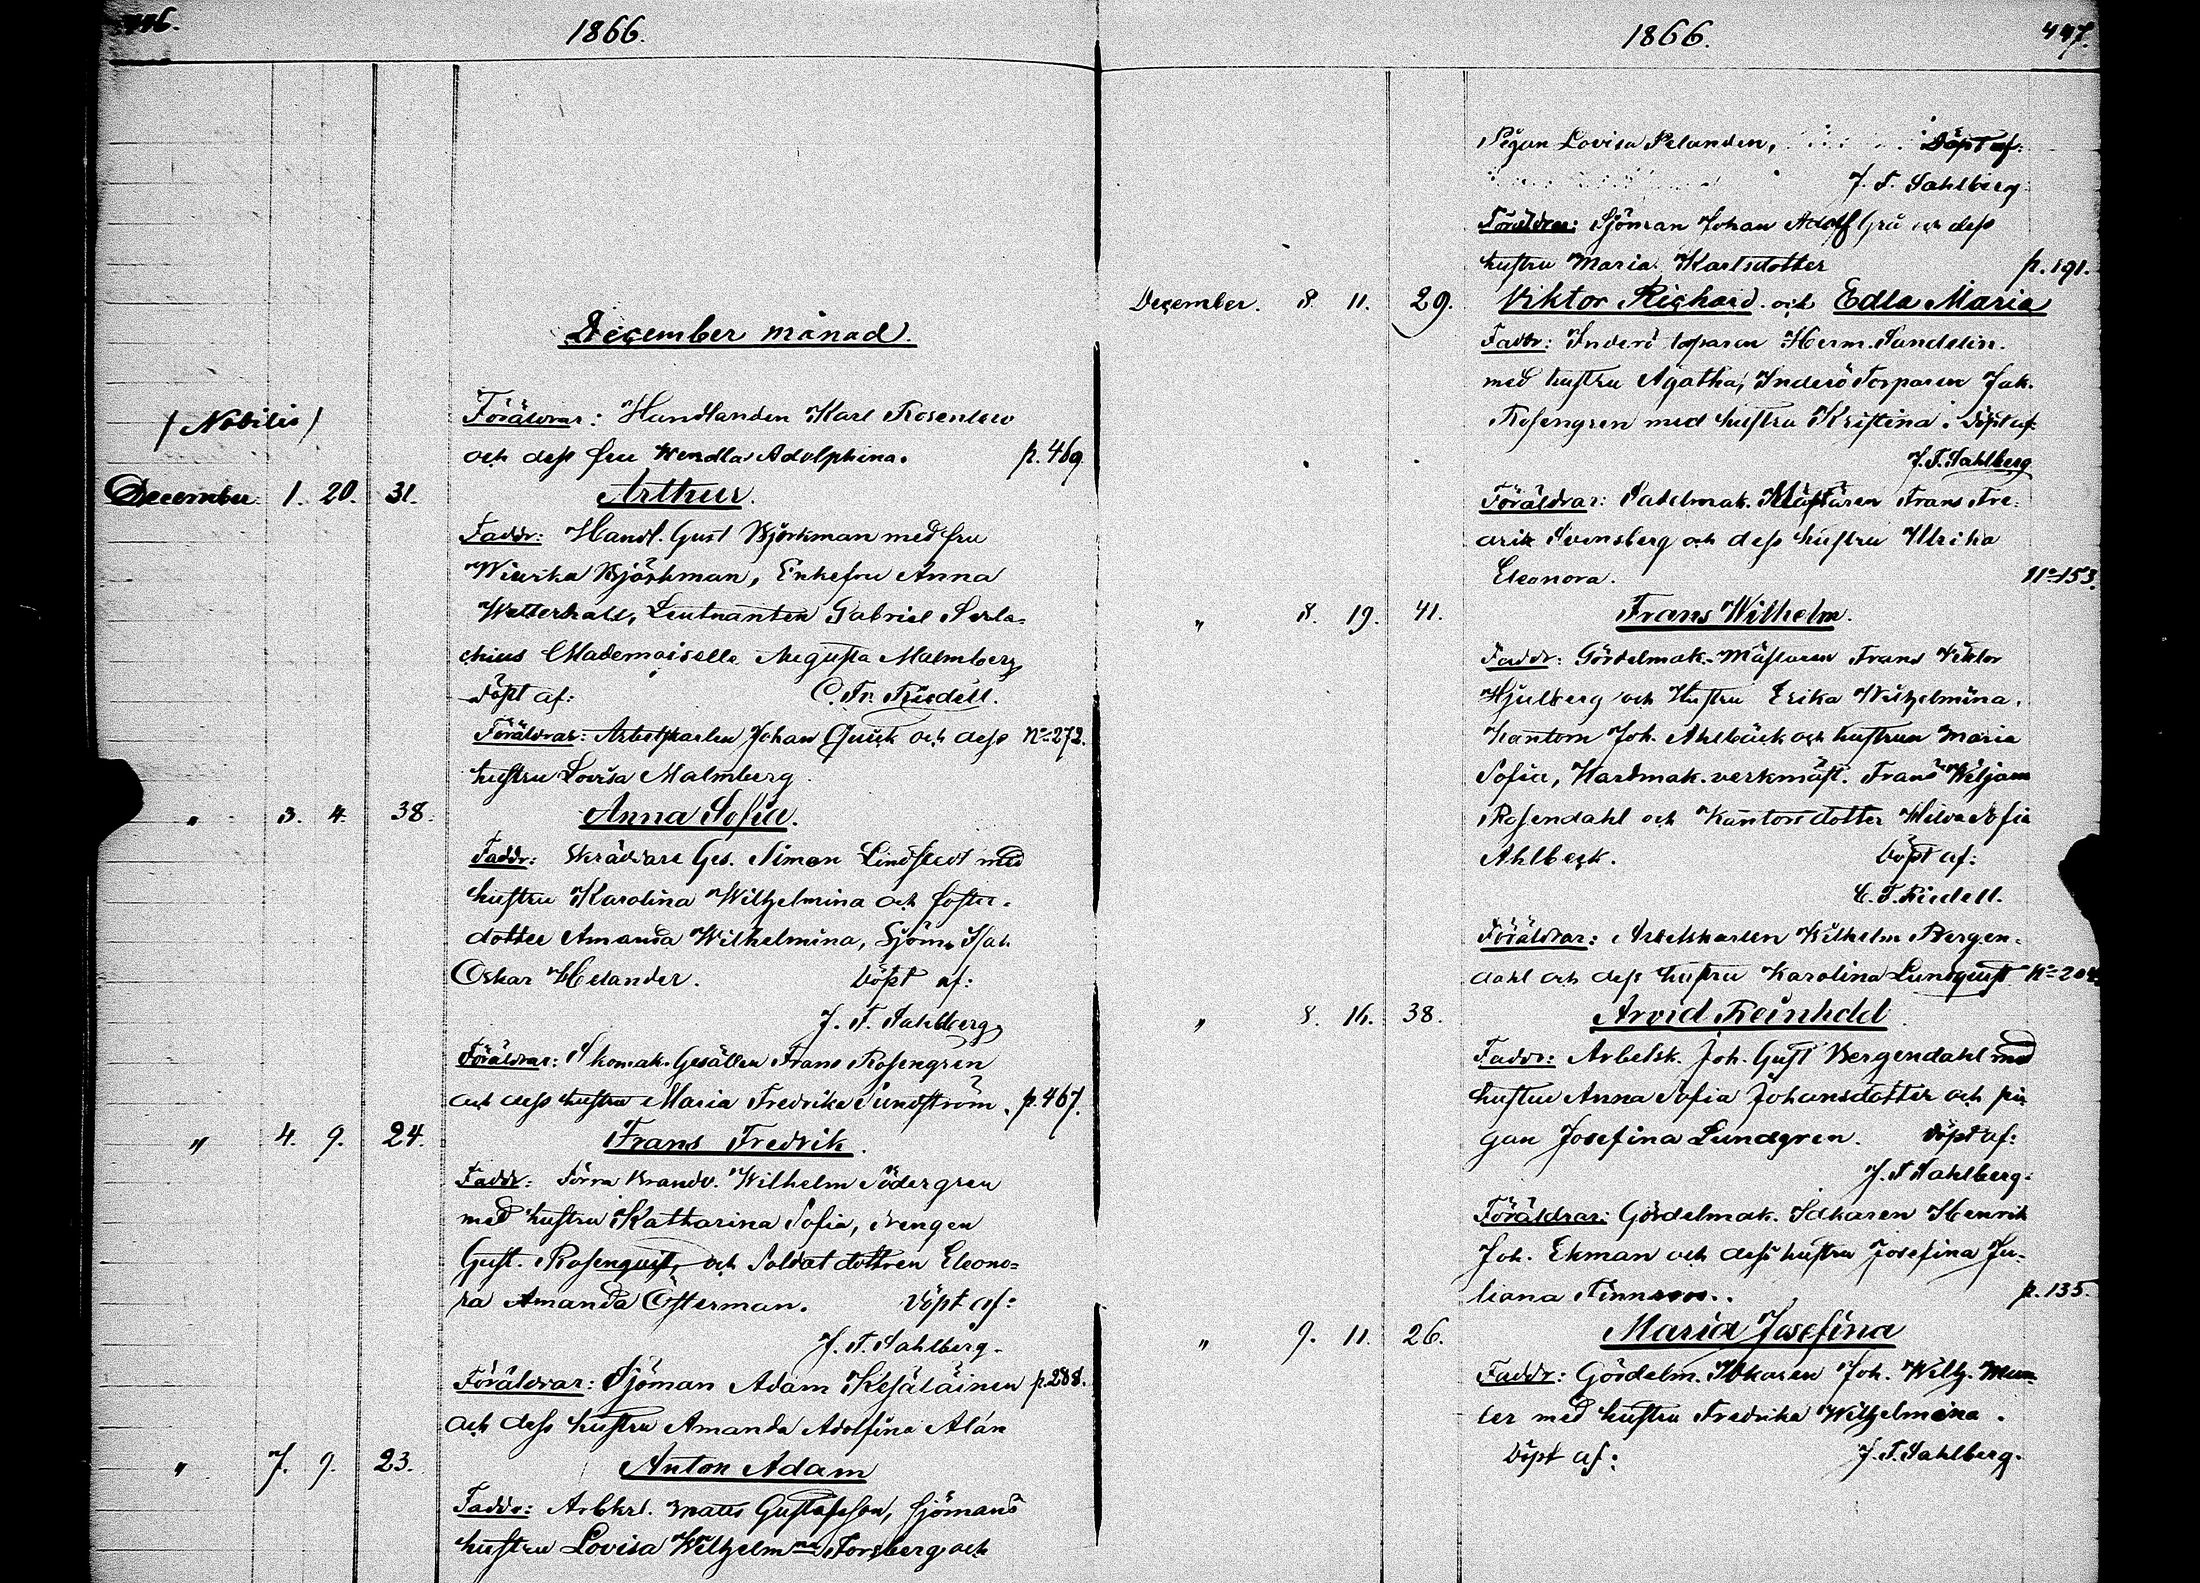 446.
1866.
December månad.
/Nobilis/
Föräldrar: Handlanden Karl Rosenlew
och dess fru Wendla Adolphina. p. 469
December 1. 20. 31. Arthur.
Faddr: Handl. Gust Björkman med fru
Björkman, Enkefru Anna
Leutnanten Gabriel Serla-
chius Mademoiselle Augusta Malmberg
Döpt af: C. Fr. Riedell.
Föräldrar: Arbetskarlen Johan Quick och dess No 272.
hustru Lovisa Malmberg
" 3. 4. 38. Anna Sofia.
Faddr: Skräddare Ges. Simon Lindstedt med
hustru Karolina Wilhelmina och foster-
dotter Amanda Wilhelmina, Sjöm.
Oskar Helander. Döpt af:
J. F. Sahlberg
Föräldrar: Skomak. Gesällen Frans Rosengren
och dess hustru Maria Fredrika Sundström. p. 467.
" 4. 9. 24. Frans Fredrik.
Faddr: Förra Brandv. Wilhelm Södergren
med hustru Katharina Sofia, drengen
Gust. Rosenquist, och Soldat dottren Eleono-
ra Amanda Österman. Döpt af:
J. F. Sahlberg.
Föräldrar: Sjöman Adam Kesäläinen p. 288.
och dess hustru Amanda Adolfina Alán
" 7. 9. 23. Anton Adam
Faddr: Arbkrl. Matts Gustafsson, sjömans
hustru Lovisa Wilhelmna Forsberg och
1866.
447.
Pigan Lovisa Selanden, Döpt af:
J. F. Sahlberg
Föräldrar: Sjöman Johan Adolf Grå och dess
hustru Maria Karlsdotter p. 191.
December. 8. 11. 29. Viktor Richard och Edla Maria
Faddr: Inderö torparen Herm. Sandelin.
med hustru Agatha, Inderö Torparen Jak.
Rosengren med hustru Kristina. Döpt af:
J. F. Sahlberg
Föräldrar: Sadelmak. Mästaren Frans Fre-
drik Svensberg och dess hustru Ulrika
Eleonora. No 153.
" 8. 19. 41. Frans Wilhelm.
Faddr: Gördelmak. Mästaren Frans Viktor
Hjulberg och Hustru Erika Wilhelmina,
Kantorn Joh. Ahlbäck och hustrun Maria
Sofia, Hardmak. verkmäst. Frans Wiljam
Rosendahl och Kantorsdotter Hilda Sofia
Ahlbeck. Döpt af:
C. F. Riedell.
Föräldrar: Arbetskarlen Wilhelm Bergen-
dahl och dess hustru Karolina Lundquist No 204.
" 8. 16. 38. Arvid Reinhold
Faddr: Arbetsk. Joh. Gust Bergendahl med
hustru Anna Sofia Johansdotter och pi-
gan Josefina Lundgren. Döpt af:
J. F. Sahlberg.
Föräldrar: Gördelmak. Idkaren Henrik
Joh. Ekman och dess hustru Josefina Ju-
liana Finnroos. p. 135.
" 9. 11. 26. Maria Josefina
Faddr: Gördelm. Idkaren Joh. Wilh. Mun-
ter med hustru Fredrika Wilhelmina.
Döpt af: J. F. Sahlberg.